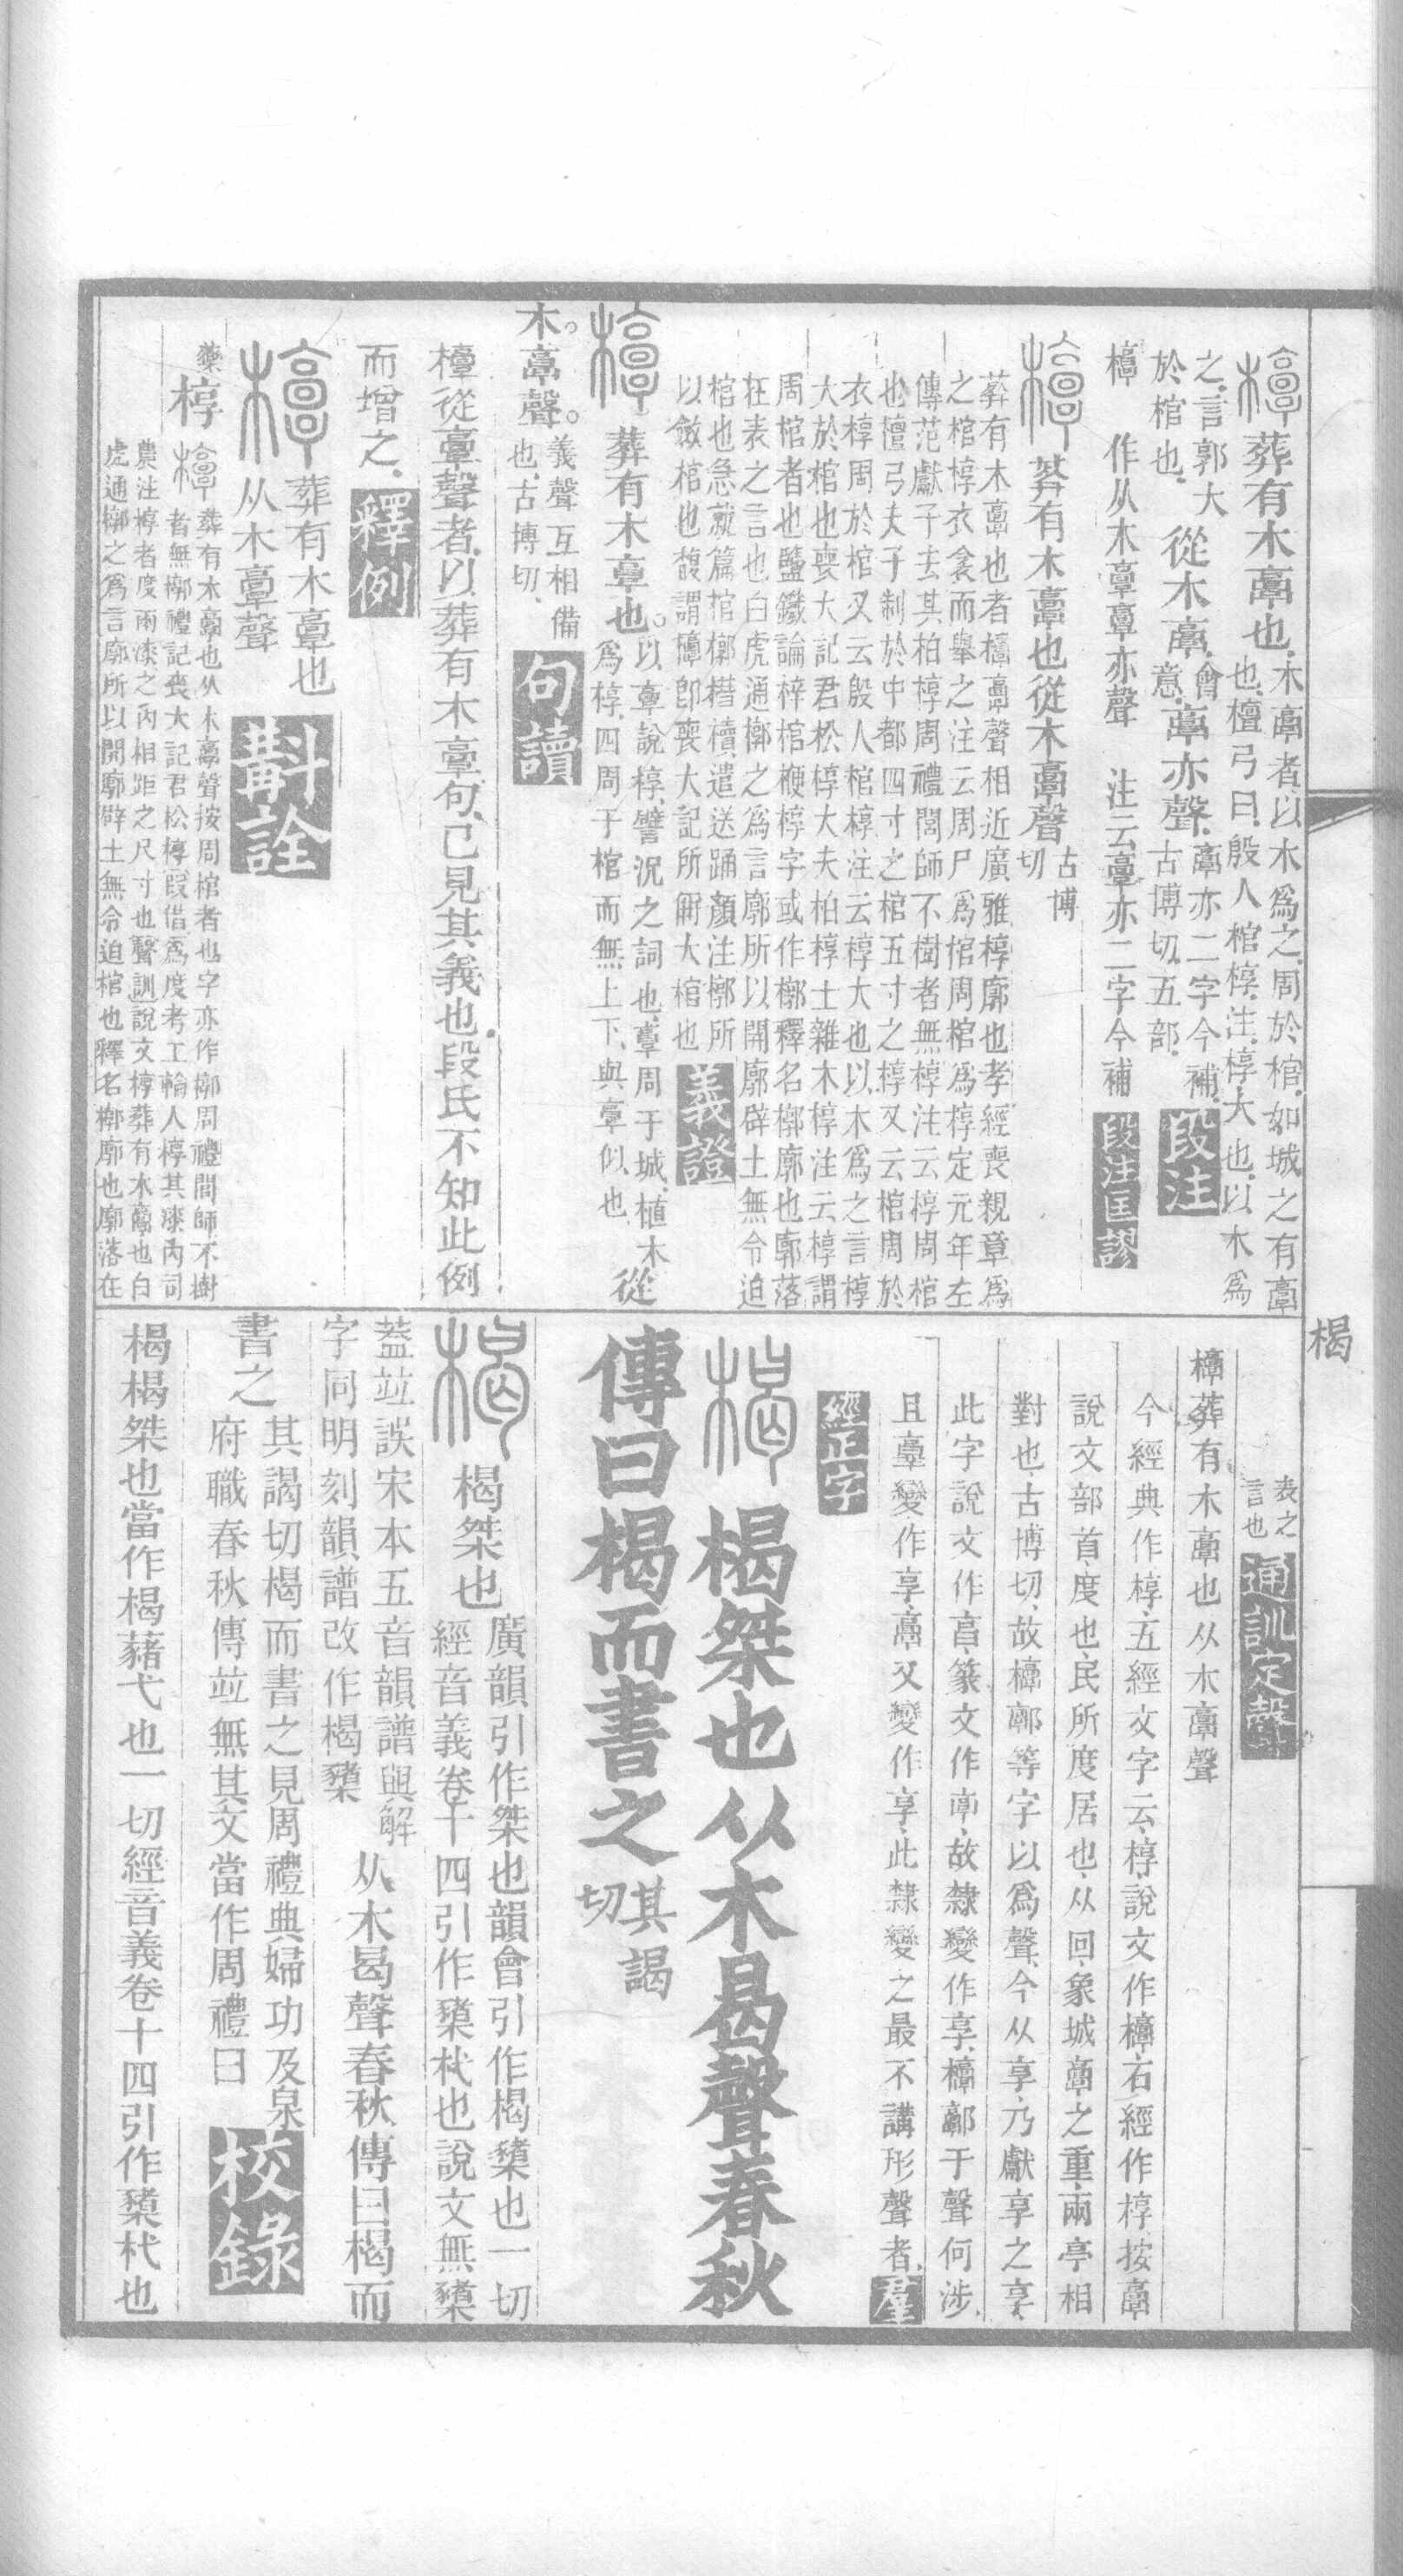 槨葬有木𩫏也.木𩫏者以木爲之.周於棺.如城之有𩫏
也.檀弓曰.殷人棺椁.注.椁大也.以木爲
之.言郭大
於棺也.從木𩫏.會意.𩫏亦聲.𩫏亦二字今補.古博切.五部.段注
槨 作从木𩫏𩫏亦聲 注云𩫏亦二字今補 段注匡謬
槨葬有木𩫏也從木𩫏聲古博切
葬有木𩫏也者槨𩫏聲相近廣雅椁廓也孝經喪親章爲
之棺椁衣衾而舉之注云周尸爲棺周棺爲椁定元年左
傳范獻子去其柏椁周禮閭師不樹者無椁注云椁周棺
也檀弓夫子制於中都四寸之棺五寸之椁又云棺周於
衣椁周於棺又云殷人棺椁注云椁大也以木爲之言椁
大於棺也喪大記君松椁大夫柏椁士雜木椁注云椁謂
周棺者也鹽鐵論梓棺楩椁字或作槨釋名槨廓也廓落
在表之言也白虎通槨之爲言廓所以開廓辟土無令迫
棺也急就篇棺槨櫝遣送踊顏注槨所
以斂棺也馥謂卽喪大記所謂大棺也 義證
槨葬有木𩫏也。以𩫏說椁.譬況之詞也.𩫏周于城.植木
爲椁.四周于棺而無上下.與𩫏似也 從
木。𩫏聲。義聲互相備也.古博切. 句讀
槨從𩫏聲者.以葬有木𩫏句.已見其義也.段氏不知此例
而增之. 釋例
槨葬有木𩫏也
从木𩫏聲 斠詮
椁 槨葬有木𩫏也从木𩫏聲按周棺者也字亦作槨周禮閭師不樹
者無槨禮記喪大記君松椁叚借爲度考工輪人椁其漆內司
農注椁者度兩漆之內相距之尺寸也聲訓說文椁葬有木𩫏也白
虎通槨之爲言廓所以開廓辟土無令迫棺也釋名槨廓也廓落在
楬
表之言也 通訓定聲
槨葬有木𩫏也从木𩫏聲
今經典作椁.五經文字云.椁.說文作槨.石經作椁.按𩫏
說文部首.度也.民所度居也.从回.象城𩫏之重.兩亭相
對也.古博切.故槨鄺等字以爲聲.今从享.乃獻享之享.
此字說文作亯.篆文作𦎫.故隸變作享.槨鄺于聲何涉.
且𩫏變作享.𩫏又變作享.此隸變之最不講形聲者. 羣
經正字
楬楬桀也从木曷聲春秋
傳曰楬而書之其謁切
楬楬桀也廣韻引作桀也韻會引作楬櫫也一切
經音義卷十四引作櫫杙也說文無櫫
葢竝誤宋本五音韻譜與解
字同明刻韻譜改作楬櫫 从木曷聲春秋傳曰楬而
書之其謁切楬而書之見周禮典婦功及泉
府職春秋傳竝無其文當作周禮曰 校錄
楬楬桀也當作楬藸弋也一切經音義卷十四引作櫫杙也